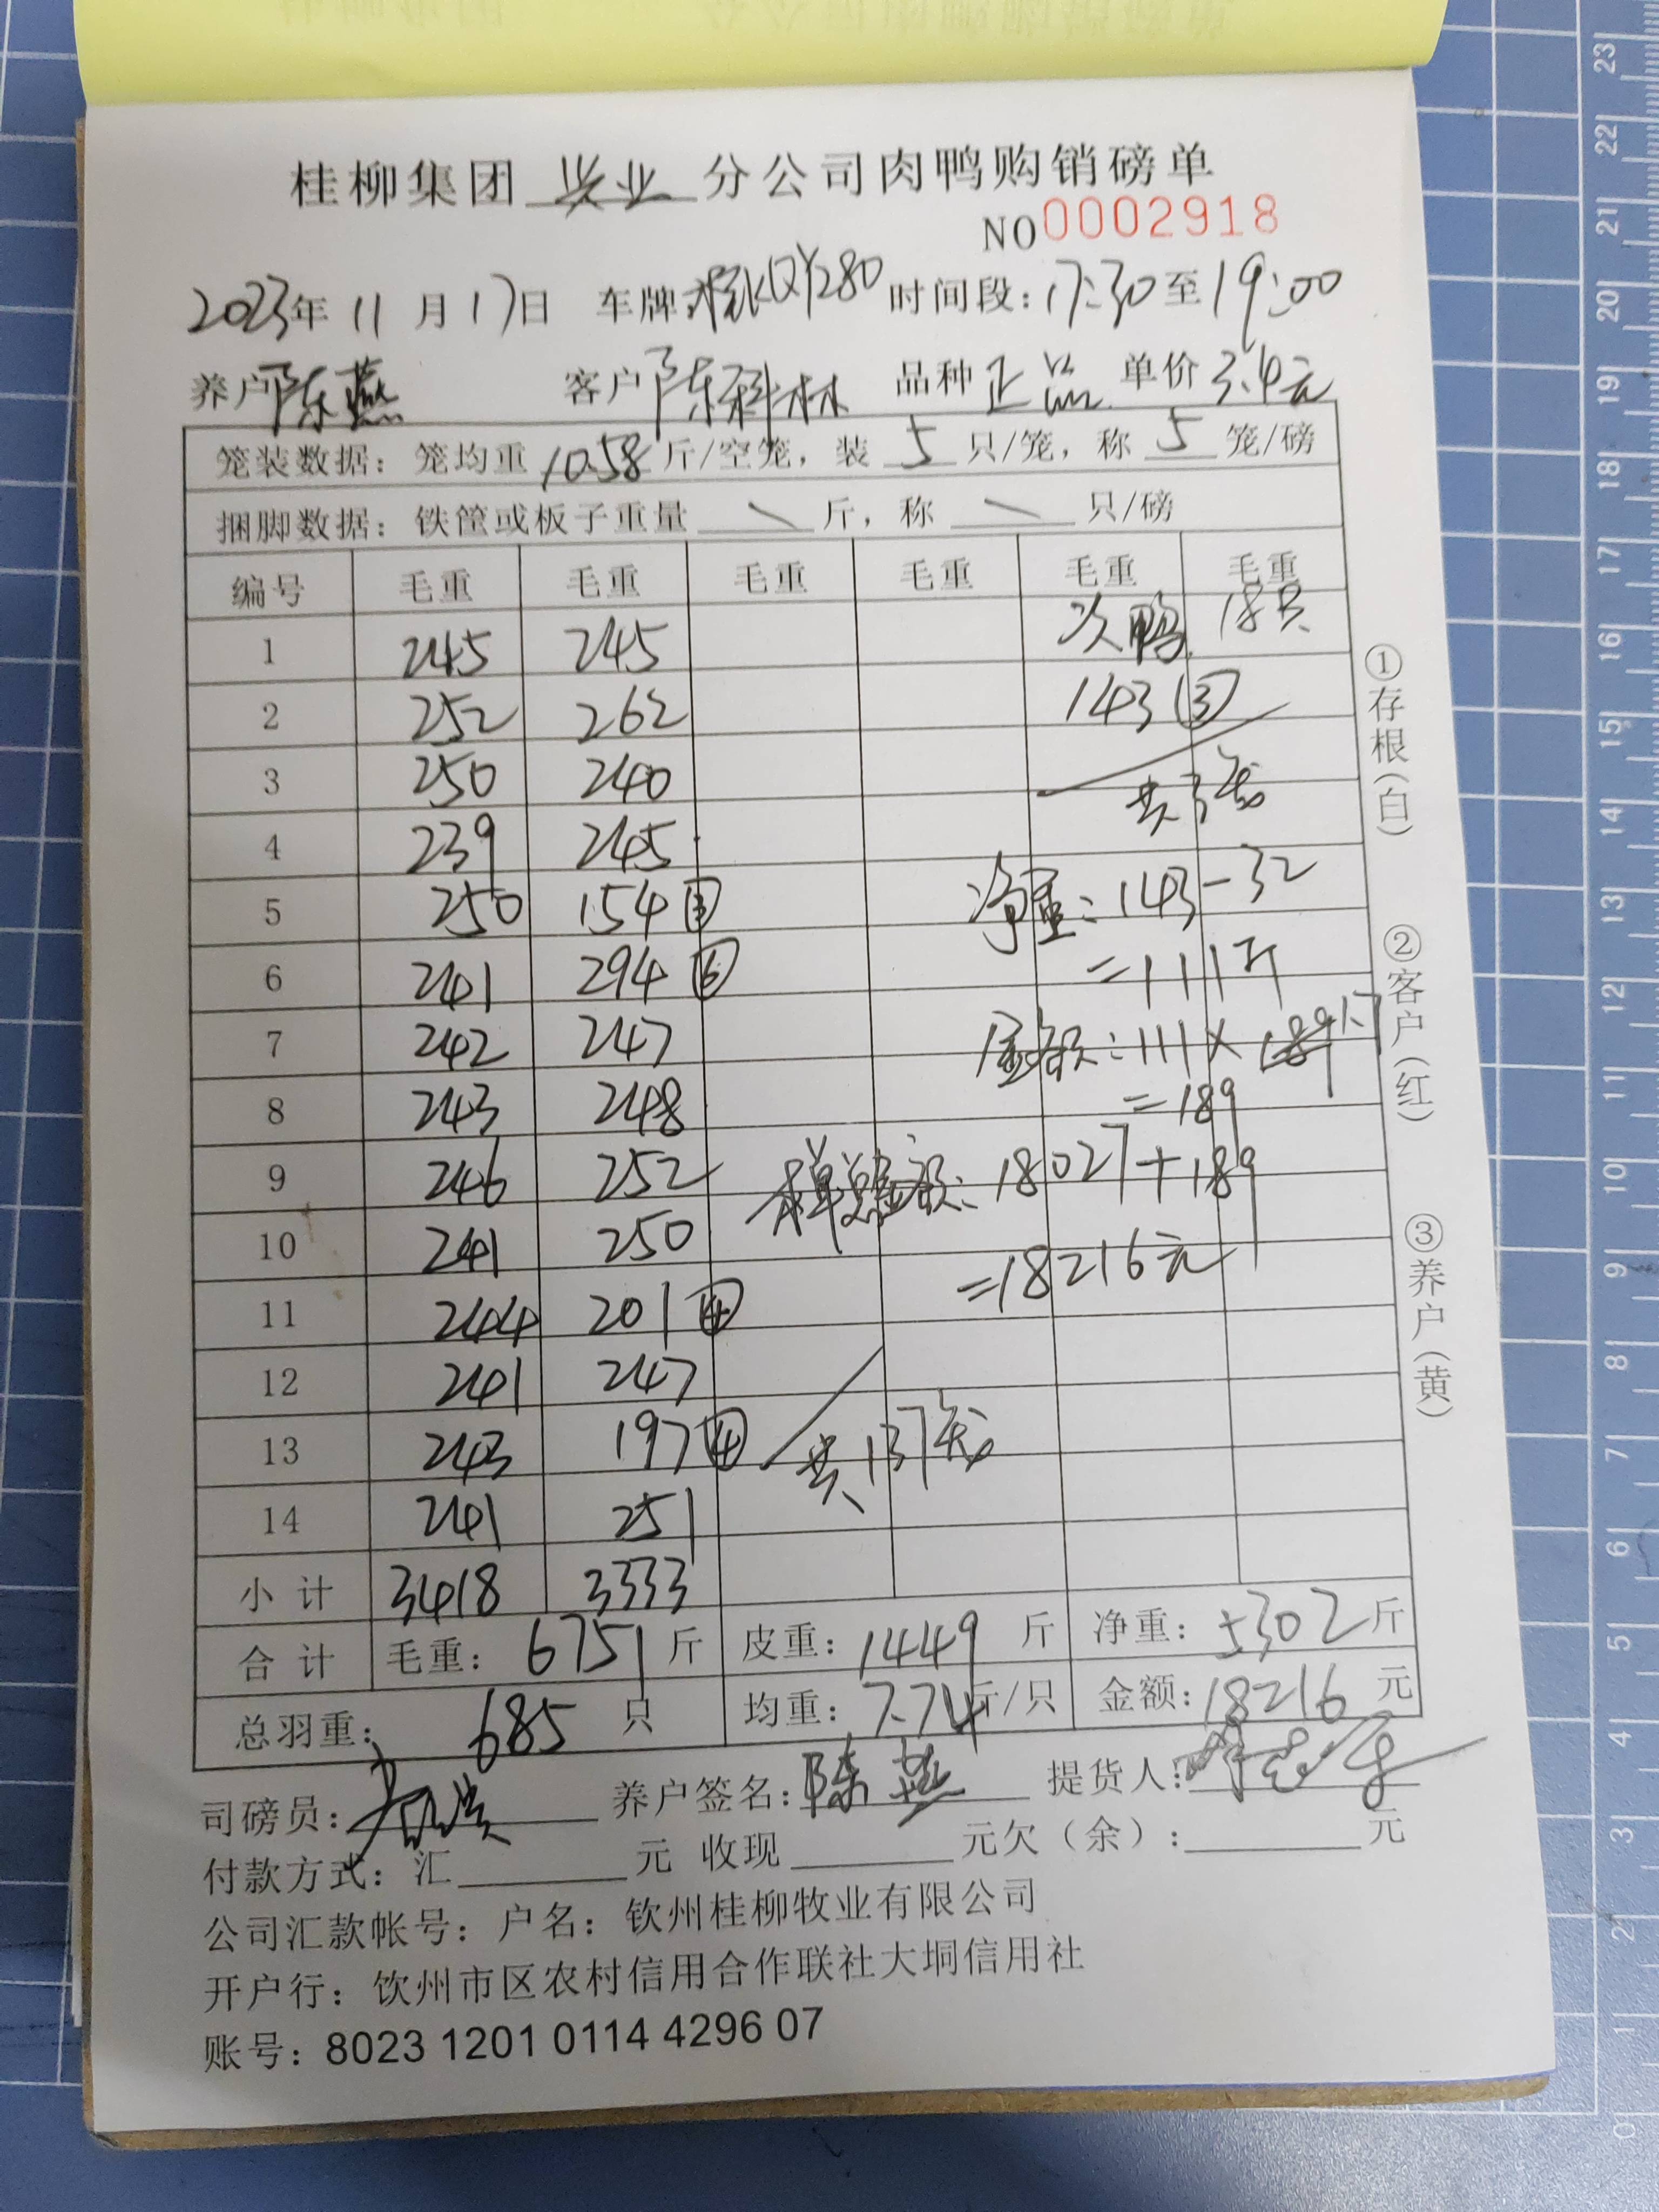 桂柳集团 兴业 分公司肉鸭购销磅单
NO 0002918
2023年 11 月 17日 车牌: QY280 时间段: 17:30 至 19:00
养户 陈燕 客户 陈科林 品种 正品 单价 3.4元
笼装数据: 笼均重 10.58 斤/空笼, 装 5 只/笼, 称 5 笼/磅
捆脚数据: 铁筐或板子重量 \ 斤, 称 \ 只/磅
编号 毛重 毛重 毛重 毛重 毛重 毛重
1 245 245 次鸭 18只
2 252 262 143 ③
3 250 240 共3笼
4 239 245
5 250 154 ③ 净重: 143-32
6 241 294 ⑥ =111斤
7 242 247 金额: 111×1.7
8 243 248 =189
9 246 252 本单总金额: 18027+189
10 241 250 =18216元
11 244 201 ④
12 241 247
13 243 197 ④ 共137笼
14 241 251
小 计 3418 3333
合 计 毛重: 6751 斤 皮重: 1449 斤 净重: 5302 斤
总羽重: 685 只 均重: 7.74斤/只 金额: 18216 元
司磅员: 养户签名: 陈燕 提货人:
付款方式: 汇 元 收现 元欠(余): 元
公司汇款帐号: 户名: 钦州桂柳牧业有限公司
开户行: 钦州市区农村信用合作联社大垌信用社
账号: 8023 1201 0114 4296 07
①存根(白)
②客户(红)
③养户(黄)
23
22
21
20
19
18
17
16
15
14
13
12
11
10
9
8
7
6
5
4
3
2
1
0